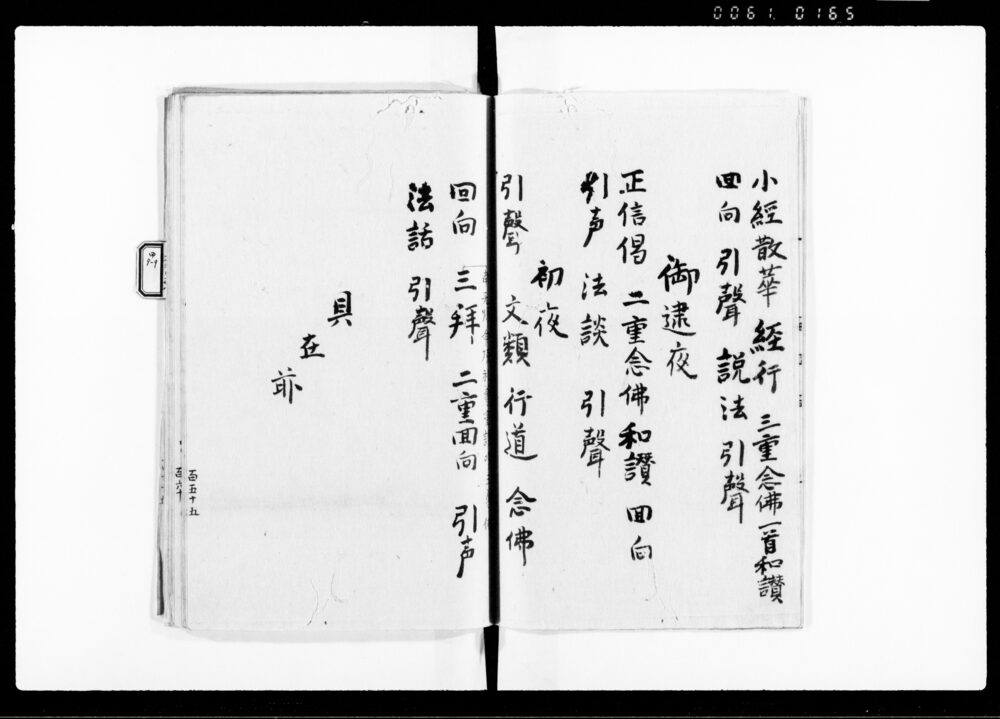 0061 0165
小經散華 經行 三重念佛一首和讃
回向 引聲 説法 引聲
御逮夜
正信偈 二重念佛和讃 回向
引声 法談 引聲
初夜
引聲 文類 行道 念佛
回向 三拜 二重回向 引声
法話 引聲
具
在
前
百五十五